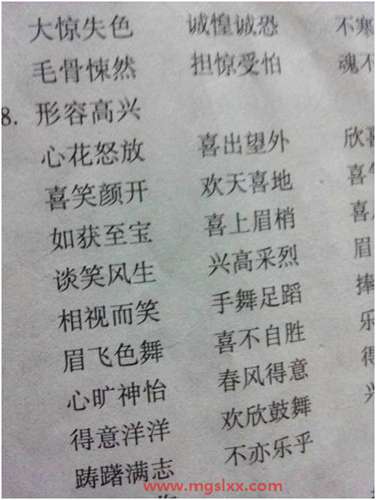 大惊失色 诚惶诚恐 不寒
毛骨悚然 担惊受怕 魂不
8. 形容高兴
心花怒放 喜出望外 欣喜
喜笑颜开 欢天喜地 喜气
如获至宝 喜上眉梢 喜
谈笑风生 兴高采烈 眉
相视而笑 手舞足蹈 捧
眉飞色舞 喜不自胜 乐
心旷神怡 春风得意 得
得意洋洋 欢欣鼓舞 兴
踌躇满志 不亦乐乎
www.mgslxx.com